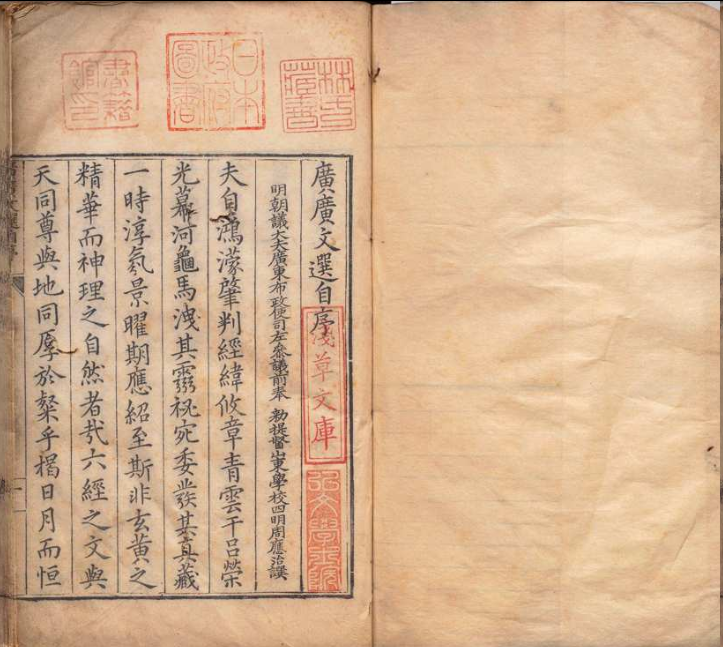 廣廣文選自序
明朝議大夫廣東布政使司左叅議前奉 勑提督山東學校四明周應治譔
夫自鴻濛肇判經緯攸章青雲干呂榮
光幕河龜馬洩其靈祕宛委發其真藏
一時淳氣景曜期應紹至斯非玄黃之
精華而神理之自然者㢤六經之文與
天同尊與地同厚於粲乎揭日月而恒
林氏藏書
日本政府圖書
書籍館印
淺草文庫